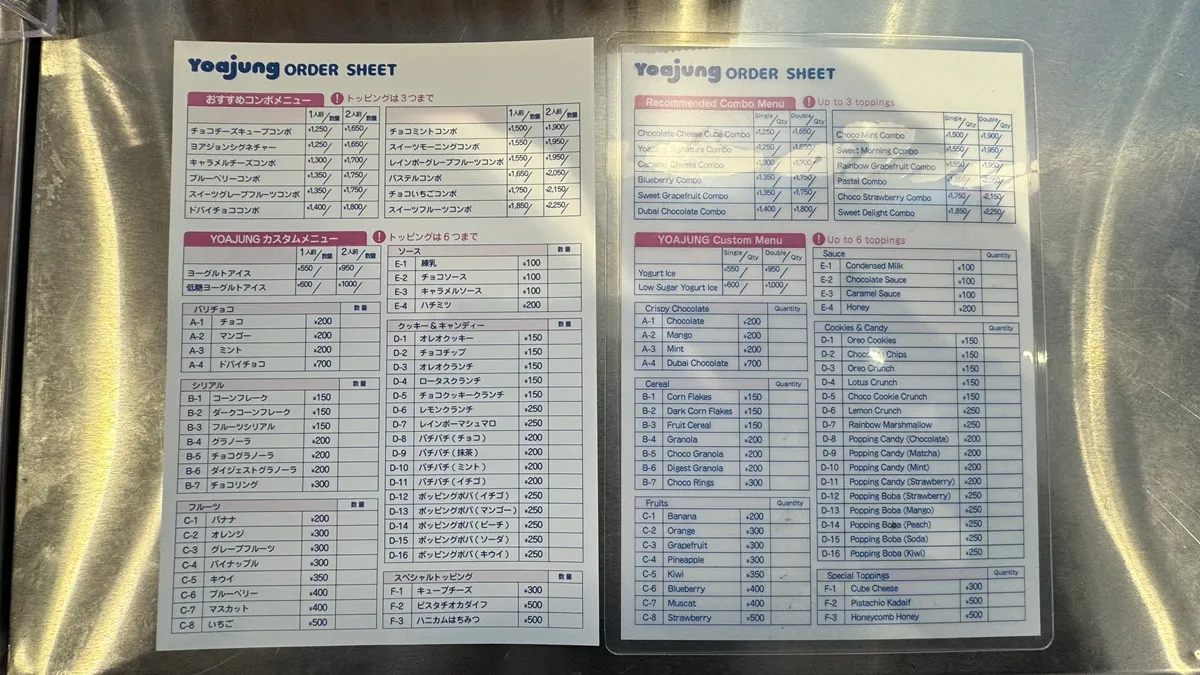 Yoajung ORDER SHEET
おすすめコンボメニュー ! トッピングは3つまで
1人前/数量 2人前/数量
チョコチーズキューブコンボ ¥1,250/ ¥1,650/
ヨアジョンシグネチャー ¥1,250/ ¥1,650/
キャラメルチーズコンボ ¥1,300/ ¥1,700/
ブルーベリーコンボ ¥1,350/ ¥1,750/
スイーツグレープフルーツコンボ ¥1,350/ ¥1,750/
ドバイチョココンボ ¥1,400/ ¥1,800/
1人前/数量 2人前/数量
チョコミントコンボ ¥1,500/ ¥1,900/
スイーツモーニングコンボ ¥1,550/ ¥1,950/
レインボーグレープフルーツコンボ ¥1,550/ ¥1,950/
パステルコンボ ¥1,650/ ¥2,050/
チョコいちごコンボ ¥1,750/ ¥2,150/
スイーツフルーツコンボ ¥1,850/ ¥2,250/
YOAJUNG カスタムメニュー ! トッピングは6つまで
1人前/数量 2人前/数量
ヨーグルトアイス ¥550/ ¥950/
低糖ヨーグルトアイス ¥600/ ¥1000/
パリチョコ 数量
A-1 チョコ ¥200
A-2 マンゴー ¥200
A-3 ミント ¥200
A-4 ドバイチョコ ¥700
シリアル 数量
B-1 コーンフレーク ¥150
B-2 ダークコーンフレーク ¥150
B-3 フルーツシリアル ¥150
B-4 グラノーラ ¥200
B-5 チョコグラノーラ ¥200
B-6 ダイジェストグラノーラ ¥200
B-7 チョコリング ¥300
フルーツ 数量
C-1 バナナ ¥200
C-2 オレンジ ¥300
C-3 グレープフルーツ ¥300
C-4 パイナップル ¥300
C-5 キウイ ¥350
C-6 ブルーベリー ¥400
C-7 マスカット ¥400
C-8 いちご ¥500
ソース 数量
E-1 練乳 ¥100
E-2 チョコソース ¥100
E-3 キャラメルソース ¥100
E-4 ハチミツ ¥200
クッキー＆キャンディー 数量
D-1 オレオクッキー ¥150
D-2 チョコチップ ¥150
D-3 オレオクランチ ¥150
D-4 ロータスクランチ ¥150
D-5 チョコクッキークランチ ¥150
D-6 レモンクランチ ¥250
D-7 レインボーマシュマロ ¥250
D-8 パチパチ(チョコ) ¥200
D-9 パチパチ(抹茶) ¥200
D-10 パチパチ(ミント) ¥200
D-11 パチパチ(イチゴ) ¥200
D-12 ポッピングボバ(イチゴ) ¥250
D-13 ポッピングボバ(マンゴー) ¥250
D-14 ポッピングボバ(ピーチ) ¥250
D-15 ポッピングボバ(ソーダ) ¥250
D-16 ポッピングボバ(キウイ) ¥250
スペシャルトッピング 数量
F-1 キューブチーズ ¥300
F-2 ピスタチオカダイフ ¥500
F-3 ハニカムはちみつ ¥500
Yoajung ORDER SHEET
Recommended Combo Menu ! Up to 3 toppings
Single/Qty Double/Qty
Chocolate Cheese Cube Combo ¥1,250/ ¥1,650/
Signature Combo ¥1,250/ ¥1,650/
Caramel Cheese Combo ¥1,300/ ¥1,700/
Blueberry Combo ¥1,350/ ¥1,750/
Sweet Grapefruit Combo ¥1,350/ ¥1,750/
Dubai Chocolate Combo ¥1,400/ ¥1,800/
Single/Qty Double/Qty
Choco Mint Combo ¥1,500/ ¥1,900/
Sweet Morning Combo ¥1,550/ ¥1,950/
Rainbow Grapefruit Combo ¥1,550/ ¥1,950/
Pastel Combo
Choco Strawberry Combo ¥1,750/ ¥2,150/
Sweet Delight Combo ¥1,850/ ¥2,250/
YOAJUNG Custom Menu ! Up to 6 toppings
Single/Qty Double/Qty
Yogurt Ice ¥550/ ¥950/
Low Sugar Yogurt Ice ¥600/ ¥1000/
Crispy Chocolate Quantity
A-1 Chocolate ¥200
A-2 Mango ¥200
A-3 Mint ¥200
A-4 Dubai Chocolate ¥700
Cereal Quantity
B-1 Corn Flakes ¥150
B-2 Dark Corn Flakes ¥150
B-3 Fruit Cereal ¥150
B-4 Granola ¥200
B-5 Choco Granola ¥200
B-6 Digest Granola ¥200
B-7 Choco Rings ¥300
Fruits Quantity
C-1 Banana ¥200
C-2 Orange ¥300
C-3 Grapefruit ¥300
C-4 Pineapple ¥300
C-5 Kiwi ¥350
C-6 Blueberry ¥400
C-7 Muscat ¥400
C-8 Strawberry ¥500
Sauce Quantity
E-1 Condensed Milk ¥100
E-2 Chocolate Sauce ¥100
E-3 Caramel Sauce ¥100
E-4 Honey ¥200
Cookies & Candy Quantity
D-1 Oreo Cookies ¥150
D-2 Chocolate Chips ¥150
D-3 Oreo Crunch ¥150
D-4 Lotus Crunch ¥150
D-5 Choco Cookie Crunch ¥150
D-6 Lemon Crunch ¥250
D-7 Rainbow Marshmallow ¥250
D-8 Popping Candy (Chocolate) ¥200
D-9 Popping Candy (Matcha) ¥200
D-10 Popping Candy (Mint) ¥200
D-11 Popping Candy (Strawberry) ¥200
D-12 Popping Boba (Strawberry) ¥250
D-13 Popping Boba (Mango) ¥250
D-14 Popping Boba (Peach) ¥250
D-15 Popping Boba (Soda) ¥250
D-16 Popping Boba (Kiwi) ¥250
Special Toppings Quantity
F-1 Cube Cheese ¥300
F-2 Pistachio Kadaif ¥500
F-3 Honeycomb Honey ¥500